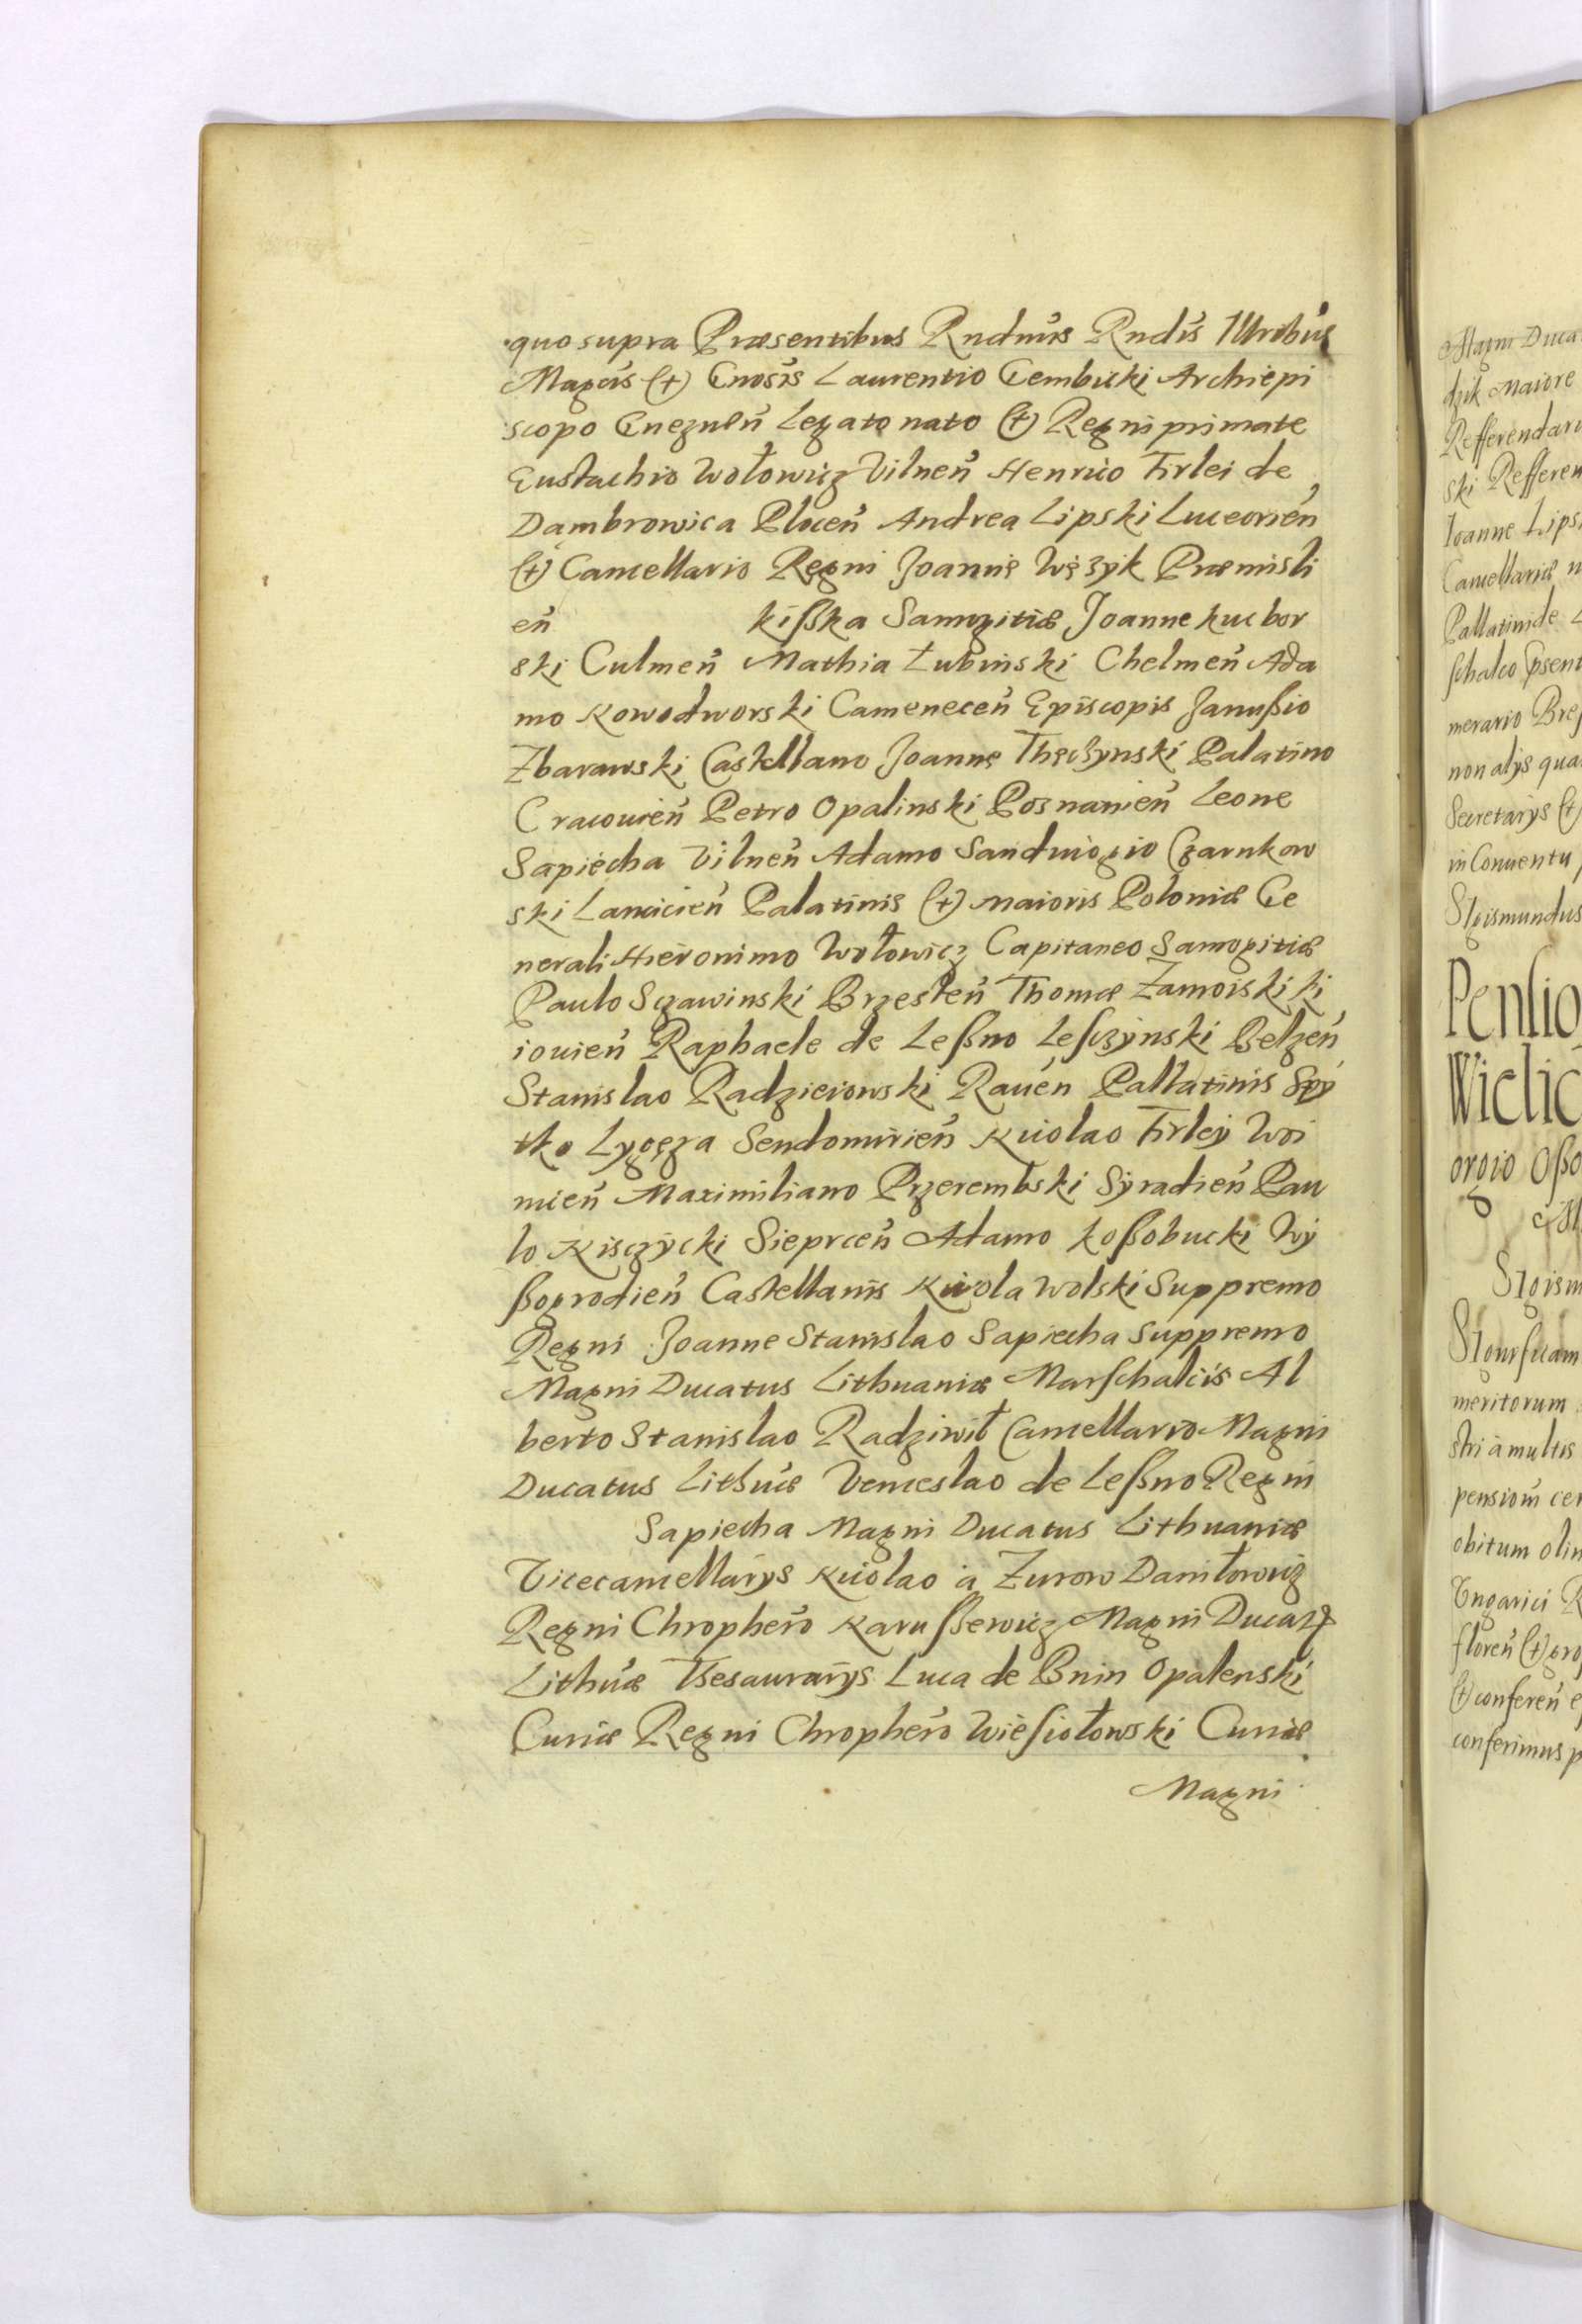 quo supra Præsentibus Rndmis Rndis Illribus
Magcis (et) Gnosis Laurentio Gembicki Archiepi
scopo Gneznen̄ Legato nato (et) Regni primate
Eustachio Wołowicz Vilnen̄ Henrico Firlei de
Dambrowica Plocen̄ Andrea Lipski Luceorien̄
(et) Cancellario Regni Joanne Wężyk Præmisli
en̄ Kißka Samogitiæ Joanne Kuc bor
ski Culmen̄ Mathia Łubinski Chelmen̄ Ada
mo Nowodworski Camenecen̄ Episcopis Janußio
Zbarawski Castellano Joanne Thęczynski Palatino
Cracouien̄ Petro Opalinski Posnanien̄ Leone
Sapiecha Vilnen̄ Adamo Sandivogio Czarnkow
ski Lancicien̄ Palatinis (et) Maioris Poloniæ Ge
nerali Hieronimo Wołowicz Capitaneo Samogitiæ
Paulo Sczawinski Brzesten̄ Thoma Zamoiski Ki
iouien̄ Raphaele de Leßno Lesczynski Belzen̄
Stanislao Radzieiowski Rauen̄ Pallatinis Spÿ
tko Lygęza Sendomirien̄ Nicolao Firleÿ Woi
nicen̄ Maximiliano Przerembski Sÿradien̄ Pau
lo Nisczÿcki Sieprcen̄ Adamo Koßobucki Wÿ
ßogrodien̄ Castellanis Nicola Wolski Suppremo
Regni Joanne Stanislao Sapiecha Suppremo
Magni Ducatus Lithuaniæ Marschalcis Al
berto Stanislao Radziwił Cancellario Magni
Ducatus Lithūæ Venceslao de Leßno Regni
Sapiecha Magni Ducatus Lithuaniæ
Vicecancellarÿs Nicolao à Zurow Daniłowicz
Regni Chrophero Narußewicz Magni Ducatus
Lithūæ Thesaurarÿs Luca de Bnin Opalenski
Curiæ Regni Chrophero Wiesiołowski Curiæ
Magni
Magni Duca
dzik Maiore
Refferendari
ski Refferen
Ioanne Lips
Cancellariæ
Pallatinide
schalco Psent
merario Bre
non alÿs qua
Secretarÿs (et)
in Conuentu
Sigismundus
Pensio
Wielic
orgio Oßo
Sigism
meritorum
stri à multis
pensiom̄
obitum olim
Vngarici
floren̄ (et) gro
(et) conferen̄
conferimus p